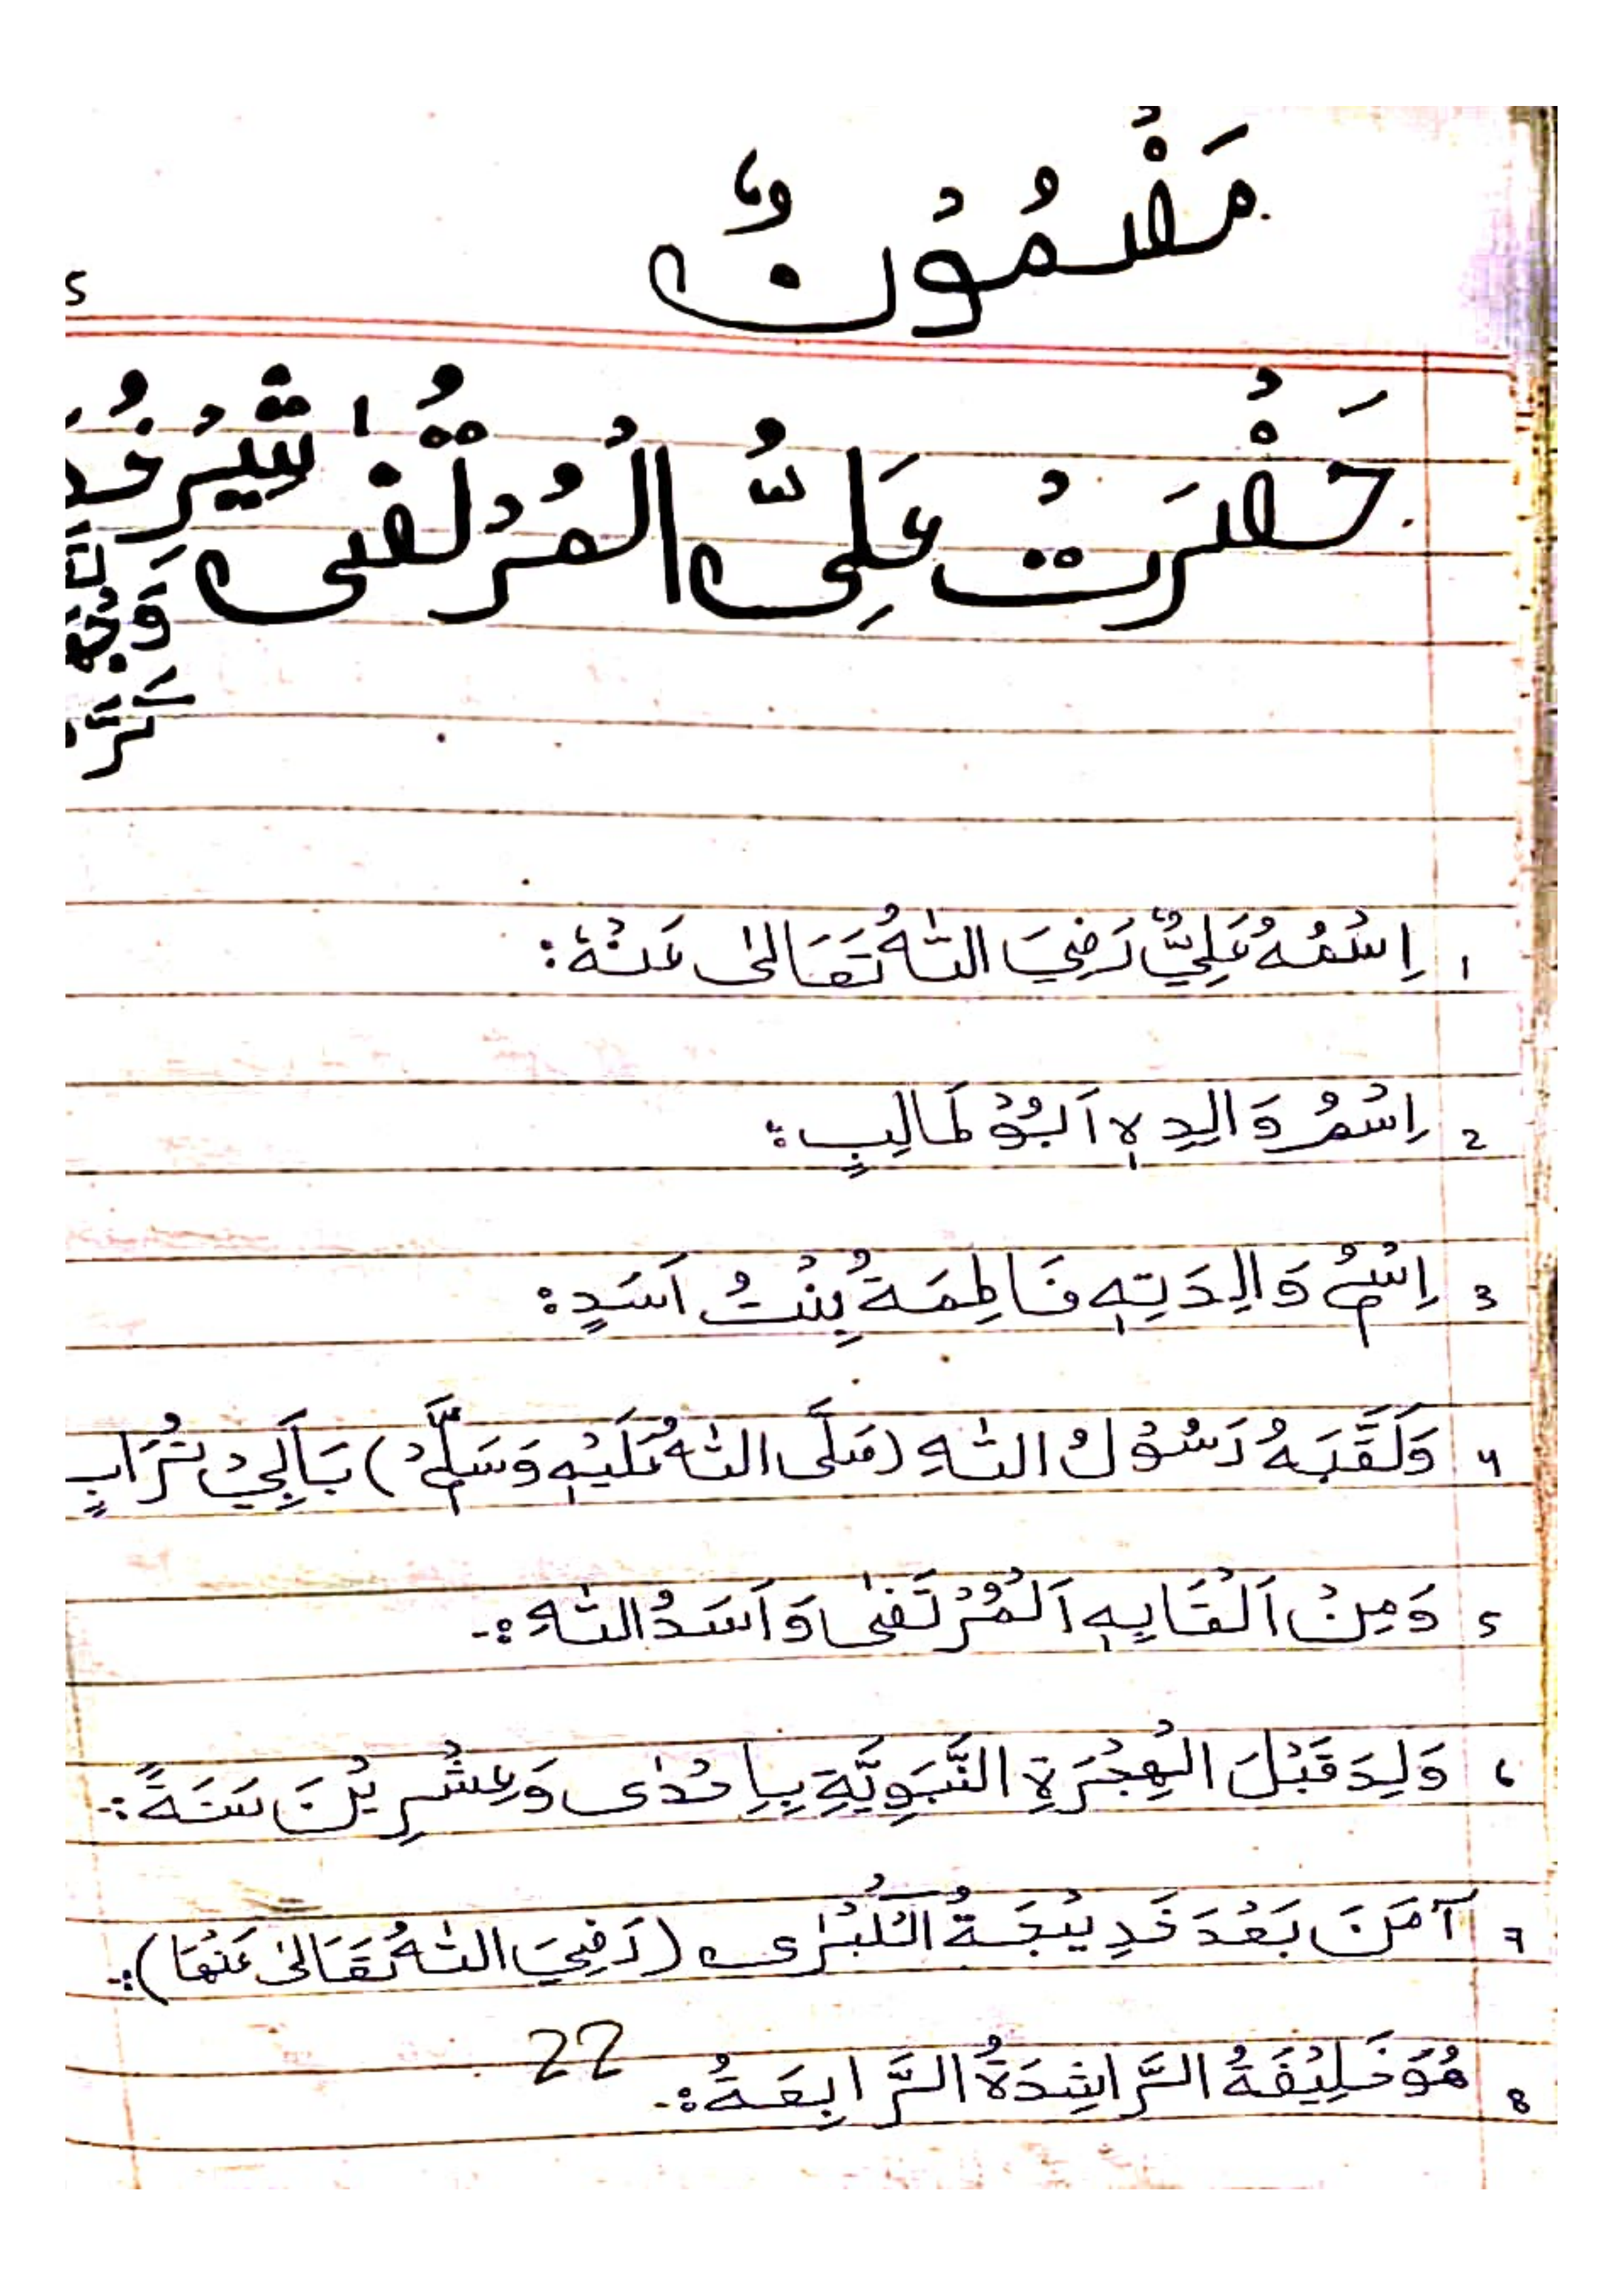 مَضْمُوْنٌ
5
حَضْرَتْ عَلِيُّ الْمُرْتَضٰى شَيْرِ خُد
وَجْهَ
كَرَّ
1 اِسْمُهُ عَلِيٌّ رَضِيَ اللّٰهُ تَعَالٰى عَنْهُ:
2 اِسْمُ وَالِدِهٖ اَبُوْ طَالِبٍ:
3 اِسْمُ وَالِدَتِهٖ فَاطِمَةُ بِنْتُ اَسَدٍ:
4 وَلَقَّبَهُ رَسُوْلُ اللّٰهِ (صَلَّى اللّٰهُ عَلَيْهِ وَسَلَّمْ) بَاَبِيْ تُرَابٍ
5 وَمِنْ اَلْقَابِهٖ اَلْمُرْتَضٰى وَاَسَدُ اللّٰهِ:-
6 وَلِدَ قَبْلَ الْهِجْرَةِ النَّبَوِيَّةِ بِاِحْدٰى وَعِشْرِيْنَ سَنَةً:-
7 آمَنَ بَعْدَ خَدِيْجَةُ الْكُبْرٰى (رَضِيَ اللّٰهُ تَعَالٰى عَنْهَا):-
8 هُوَ خَلِيْفَةُ الرَّاشِدَةُ الرَّابِعَةُ:-
22